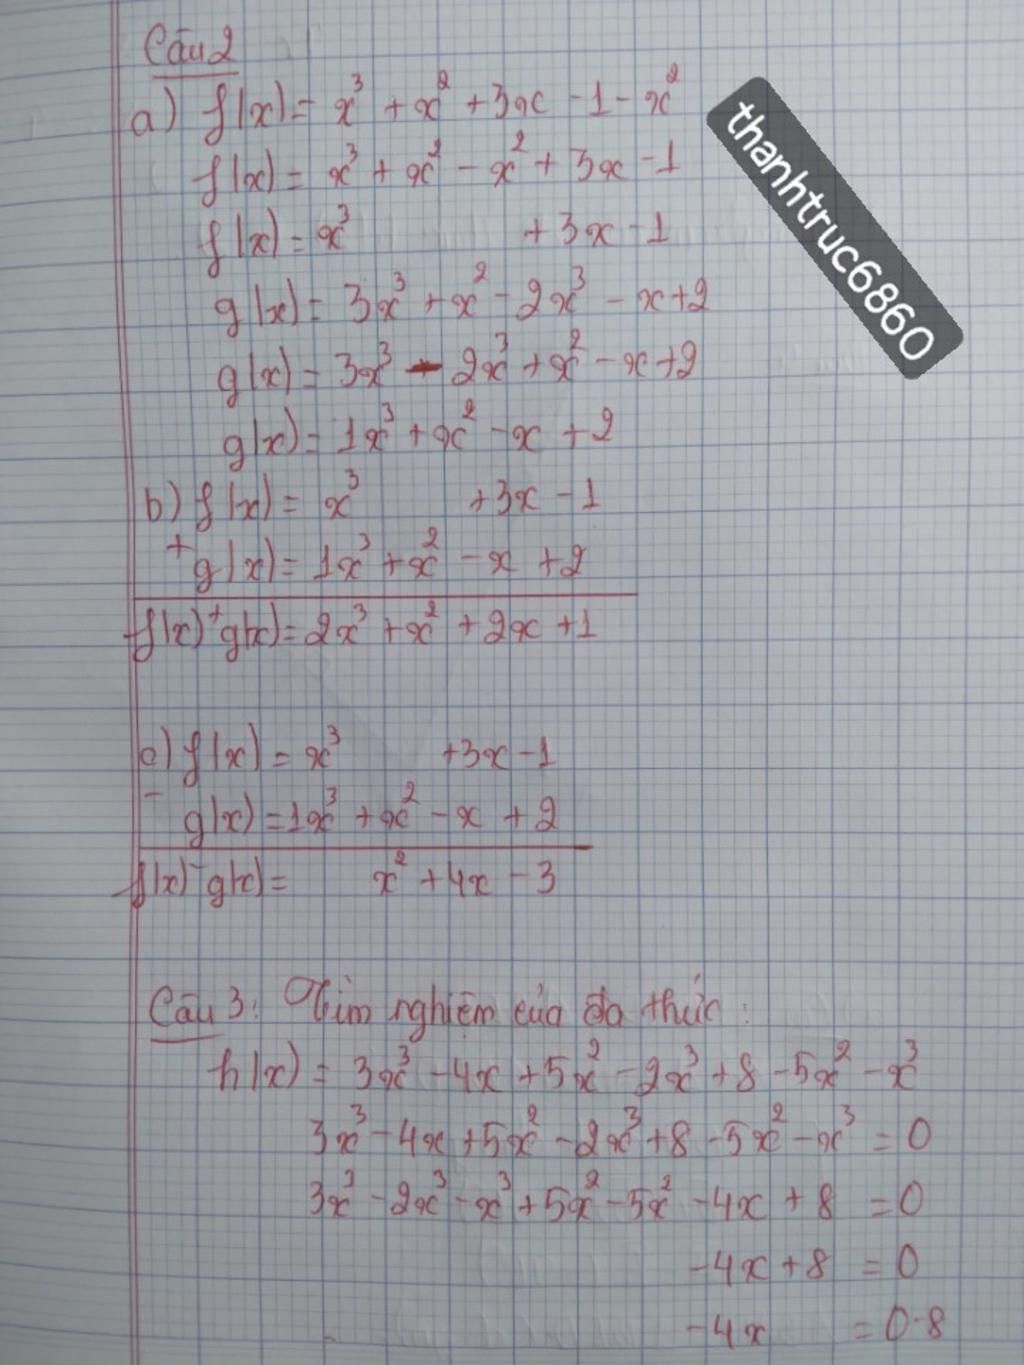 Câu 2
a) f(x) = x³ + x² + 3x - 1 - x²
f(x) = x³ + x² - x² + 3x - 1
f(x) = x³ + 3x - 1
g(x) = 3x³ + x² - 2x³ - x + 2
g(x) = 3x³ - 2x³ + x² - x + 2
g(x) = 1x³ + x² - x + 2
b) f(x) = x³ + 3x - 1
+ g(x) = 1x³ + x² - x + 2
f(x) + g(x) = 2x³ + x² + 2x + 1
c) f(x) = x³ + 3x - 1
- g(x) = 1x³ + x² - x + 2
f(x) - g(x) = x² + 4x - 3
Câu 3: Tìm nghiệm của đa thức:
h(x) = 3x³ - 4x + 5x² - 2x³ + 8 - 5x² - x³
3x³ - 4x + 5x² - 2x³ + 8 - 5x² - x³ = 0
3x³ - 2x³ - x³ + 5x² - 5x² - 4x + 8 = 0
-4x + 8 = 0
-4x = 0-8
thanhtruc6860